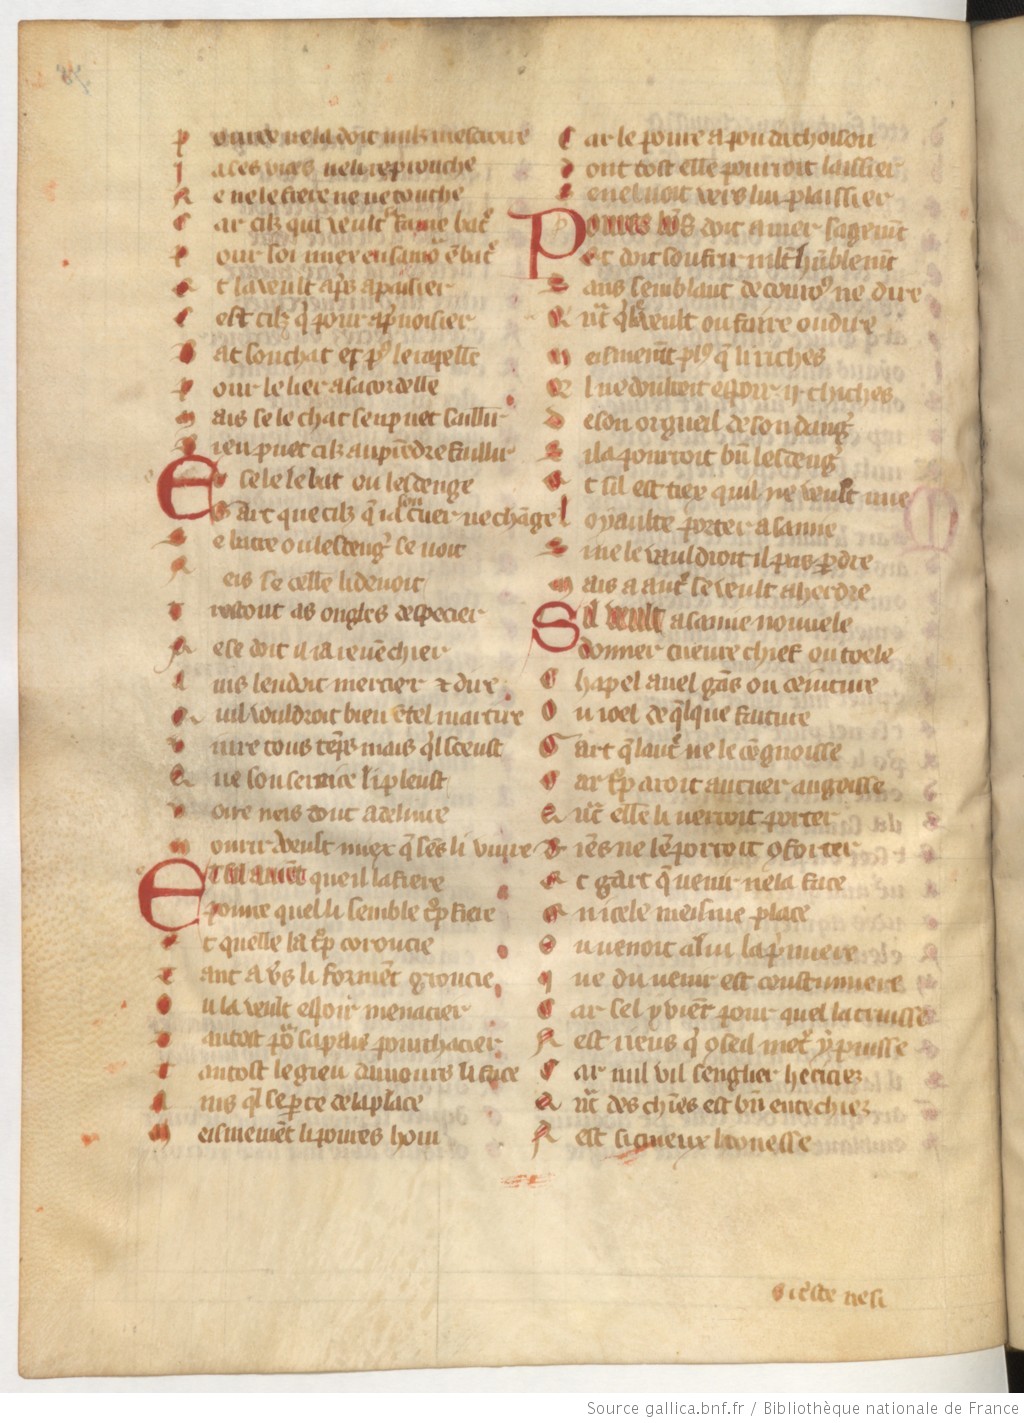 P our ce ne la doit nulz mescroire
J a ces vices ne li reprouche
N e ne le fiere ne ne touche
C ar cilz qui veult fame batre
P our soi mieux en samour embatre
E t la veult apres apaisier
C est cilz q̃ pour aprivoisier
B at son chat et puis le rapelle
P our le lier a sa cordelle
M ais se le chat sen puet saillir
B ien puet cilz au prendre faillir
E s se le le bat ou ledenge
Gart que cilz q̃ son cuer ne change
S e batre ou ledengier se voit
N eis se celle li devoit
T restout as ongles depecier
N e se doit il ja revenchier
A ins len doit mercier et dire
Q uil vouldroit bien en tel martire
V ivre tous temps mais quil sceust
Q ue son service li pleust
V oire neis tout a delivre
M ourir veult miex q̃ sens li vivre
E t sil avient que il la fiere
Pour ce quel li semble trop fiere
E t quelle la trop coroucie
T ant a vers li forment groucie
O u la veult espoir menacier
T antost pour sa paix pourchacier
T antost le gieu damours li face
A ins quil se parte de la place
M eismement li povres hom
C ar le povre a pou dachoison
D ont tost elle pourroit laissier
S en el noit vers lui plaissier
Povres homs doit amer sagement
Et doit soufrir mlt humblement
S ans semblant de courous ne dire
Q uanquel veult ou faire ou dire
M eismement plus q̃ li riches
Q ui ne doubroit espoir ij chiches
D e son orgueil de son dangier
S i la pourroit bien ledengier
E t sil est tiex quil ne veult mie
L oyaulte porter a samie
S i ne le vauldroit il pas perdre
M ais a autre se veult aherdre
Sil veult a samie nouvele
donner cuevre chief ou toele
C hapel anel gans ou ceinture
O u joel de quelque faiture
G art q̃ lautre ne le congnoisse
C ar trop aroit au cuer angoisse
Q uant elle li verroit porter
R iens ne len porroit conforter
E t gart q̃ venir ne la face
E n icele meisme place
O u venoit a lui la premiere
Q ue du venir est coustumiere
C ar sel y vient pour quel la truisse
N est riens q̃ conseil metre y puisse
C ar nul vil senglier hericiez
Q uant des chiens est bien entechiez
N est si crueux lionesse
si triste ne si
Source gallica.bnf.fr / Bibliothèque nationale de France